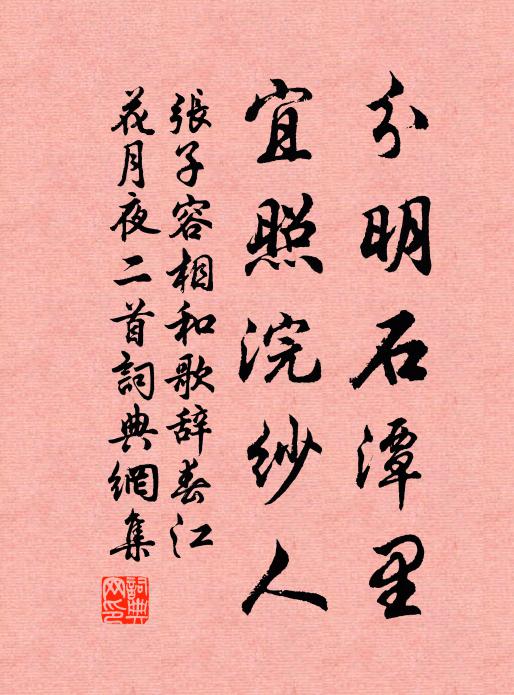 分明石潭里
宜照浣紗人
張子容相和歌辞春江
花月夜二首詞典網集
詞典网印